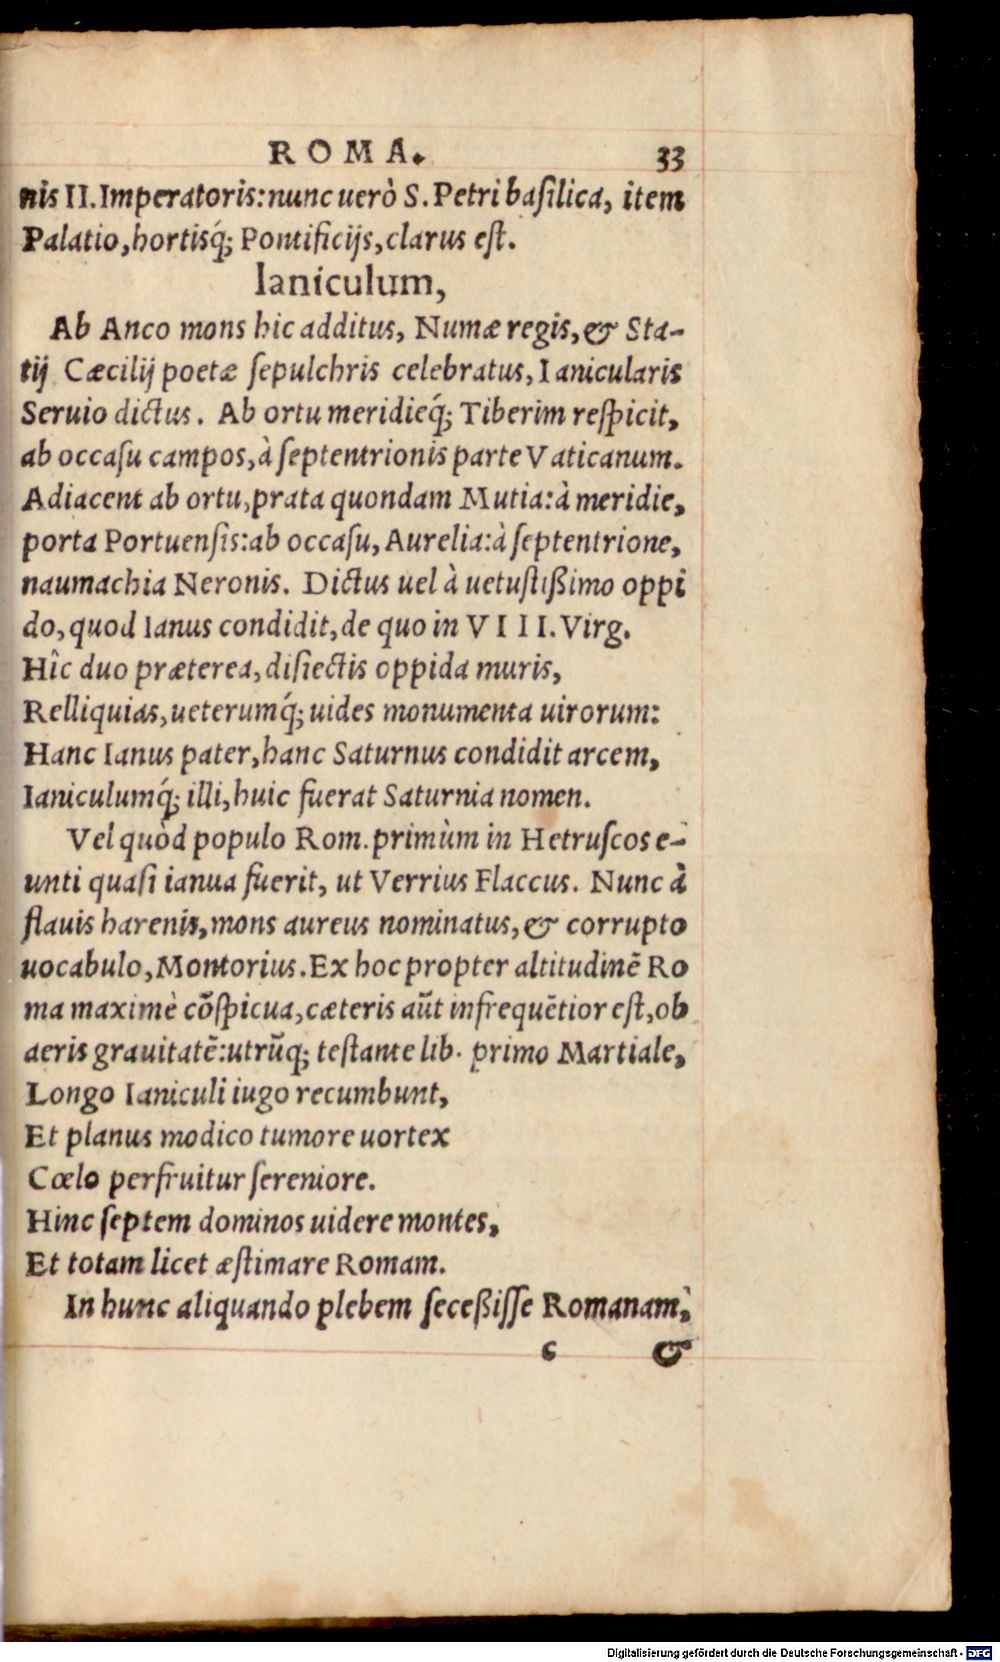 ROMA. 33
nis II. Imperatoris: nunc uerò S. Petri baſilica, item
Palatio, hortisq́; Pontificijs, clarus eſt.
Ianiculum,
Ab Anco mons hic additus, Numæ regis, & Sta-
tij Cæcilij poetæ ſepulchris celebratus, Ianicularis
Seruio dictus. Ab ortu meridieq́; Tiberim reſpicit,
ab occaſu campos, à ſeptentrionis parte Vaticanum.
Adiacent ab ortu, prata quondam Mutia: à meridie,
porta Portuenſis: ab occaſu, Aurelia: à ſeptentrione,
naumachia Neronis. Dictus uel à uetuſtißimo oppi
do, quod Ianus condidit, de quo in VIII. Virg.
Hîc duo præterea, diſiectis oppida muris,
Relliquias, ueterumq́; uides monumenta uirorum:
Hanc Ianus pater, hanc Saturnus condidit arcem,
Ianiculumq́; illi, huic fuerat Saturnia nomen.
Vel quòd populo Rom. primùm in Hetruſcos e-
unti quaſi ianua fuerit, ut Verrius Flaccus. Nunc à
flauis harenis, mons aureus nominatus, & corrupto
uocabulo, Montorius. Ex hoc propter altitudinē Ro
ma maximè cōſpicua, cæteris aūt infrequētior eſt, ob
aeris grauitatē: utrūq; teſtante lib. primo Martiale,
Longo Ianiculi iugo recumbunt,
Et planus modico tumore uortex
Cœlo perfruitur ſereniore.
Hinc ſeptem dominos uidere montes,
Et totam licet æſtimare Romam.
In hunc aliquando plebem ſeceßiſſe Romanam,
c &
Digitalisierung gefördert durch die Deutsche Forschungsgemeinschaft - DFG